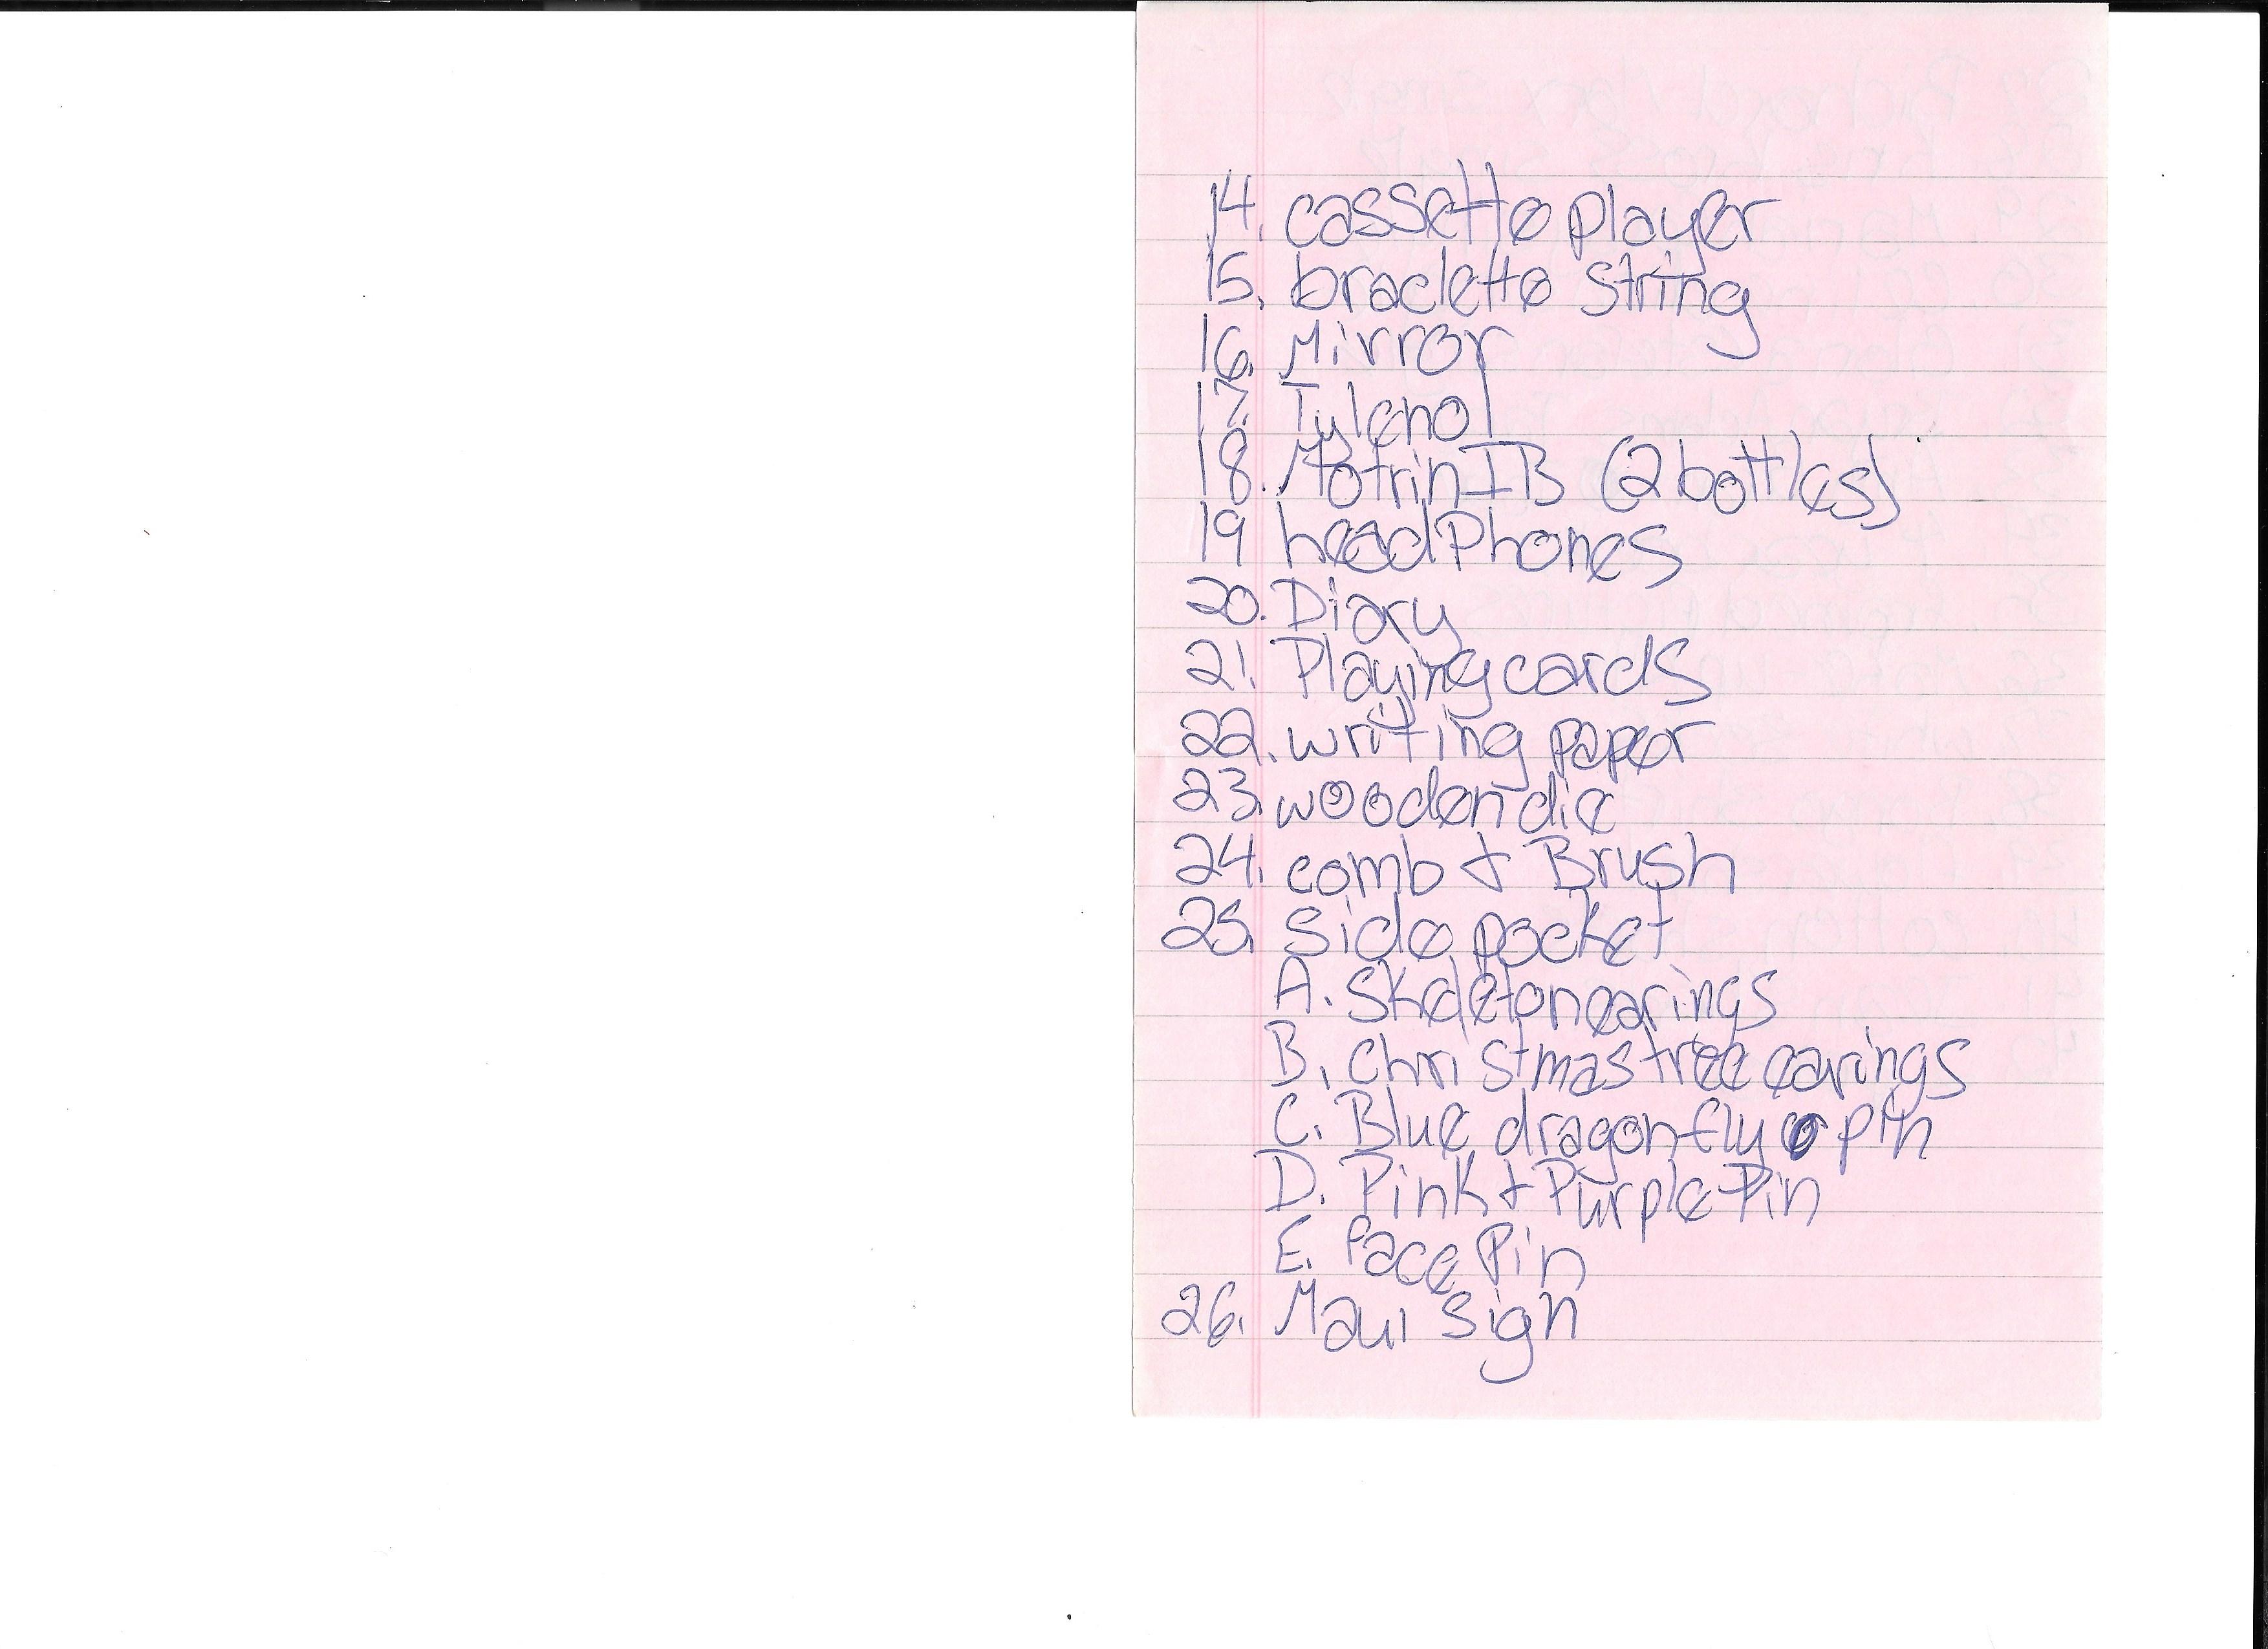 14. cassette player
15. braclette string
16. Mirror
17. Tylenol
18. Motrin IB (2 bottles)
19 headPhones
20. Diary
21. Playing cards
22. writing paper
23. wooden die
24. comb + Brush
25. side pocket
A. skeleton earings
B. Christmas tree earings
C. Blue dragonfly pin
D. Pink + Purple Pin
E. face Pin
26. Maui sign